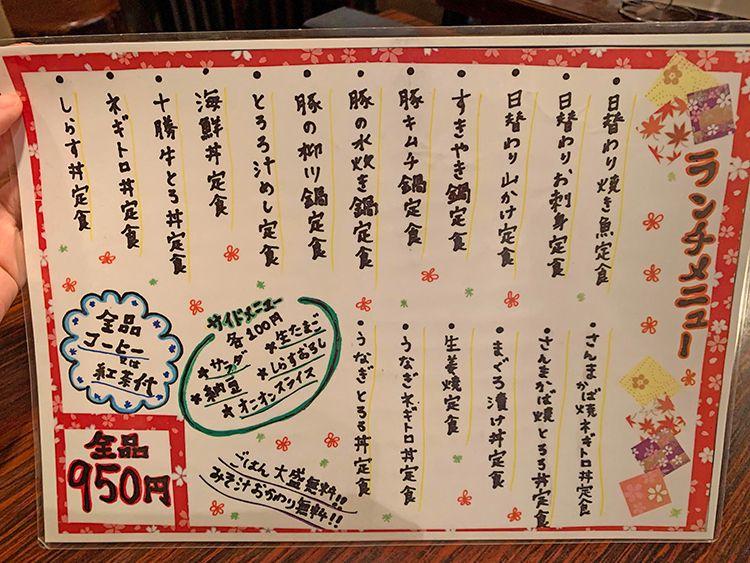 ランチメニュー
・日替わり焼き魚定食
・日替わりお刺身定食
・日替わり山かけ定食
・すきやき鍋定食
・豚キムチ鍋定食
・豚の水炊き鍋定食
・豚の柳川鍋定食
・とろろ汁めし定食
・海鮮丼定食
・十勝牛とろ丼定食
・ネギトロ丼定食
・しらす丼定食
・さんまかば焼ネギトロ丼定食
・さんまかば焼とろろ丼定食
・まぐろ漬け丼定食
・生姜焼定食
・うなぎネギトロ丼定食
・うなぎとろろ丼定食
サイドメニュー
各100円
*サラダ
*生たまご
*納豆
*しらすおろし
*オニオンスライス
全品
コーヒー
又は
紅茶代
全品
950円
ごはん大盛無料!!
みそ汁おかわり無料!!